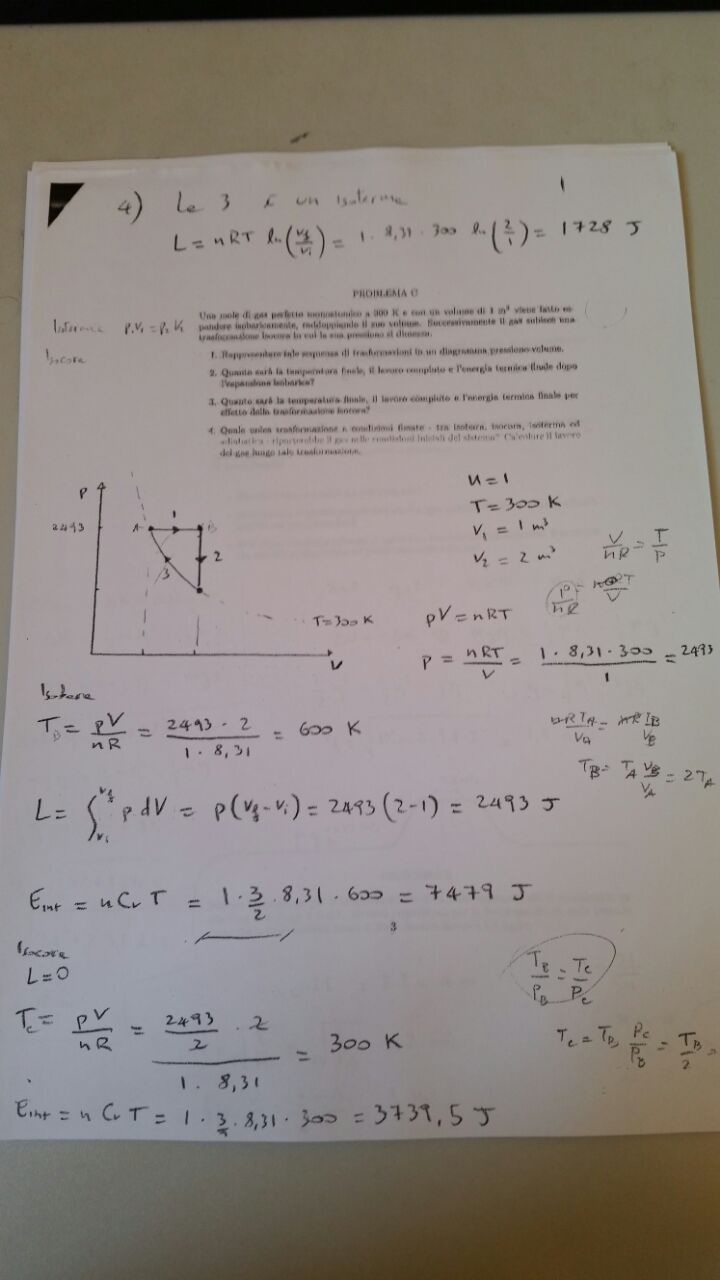 1
4) Le 3 è un isoterma
L = nRT ln(Vf/Vi) = 1 · 8,31 · 300 ln(2/1) = 1728 J
PROBLEMA C
Una mole di gas perfetto monoatomico a 300 K e con un volume di 1 m³ viene fatto es-
pandere isobaricamente, raddoppiando il suo volume. Successivamente il gas subisce una
trasformazione isocora in cui la sua pressione si dimezza.
Isocora
1. Rappresentare tale sequenza di trasformazioni in un diagramma pressione-volume.
2. Quanto sarà la temperatura finale, il lavoro compiuto e l'energia termica finale dopo
l'espansione isobarica?
3. Quanto sarà la temperatura finale, il lavoro compiuto e l'energia termica finale per
effetto della trasformazione isocora?
4. Quale unica trasformazione a condizioni fissate - tra isobara, isocora, isoterma ed
adiabatica - riporterebbe il gas nelle condizioni iniziali del sistema? Calcolare il lavoro
del gas lungo tale trasformazione.
P
2493
A
1
B
2
3
T=300 K
V
n=1
T=300 K
V₁ = 1 m³
V₂ = 2 m³
V/nR = T/P
pV = nRT
P = nRT/V = 1 · 8,31 · 300/1 = 2493
T_B = pV/nR = 2493 · 2/1 · 8,31 = 600 K
nRT_A/V_A = nRT_B/V_B
T_B = T_A V_B/V_A = 2T_A
L = ∫ p dV = p(Vf-Vi) = 2493(2-1) = 2493 J
Eint = n Cv T = 1 · 3/2 · 8,31 · 600 = 7479 J
3
Isocora
L=0
T_B/P_B = T_C/P_C
T_C = pV/nR = 2493/2 · 2/1 · 8,31 = 300 K
T_C = T_B P_C/P_B = T_B/2 =
Eint = n Cv T = 1 · 3/2 · 8,31 · 300 = 3739,5 J